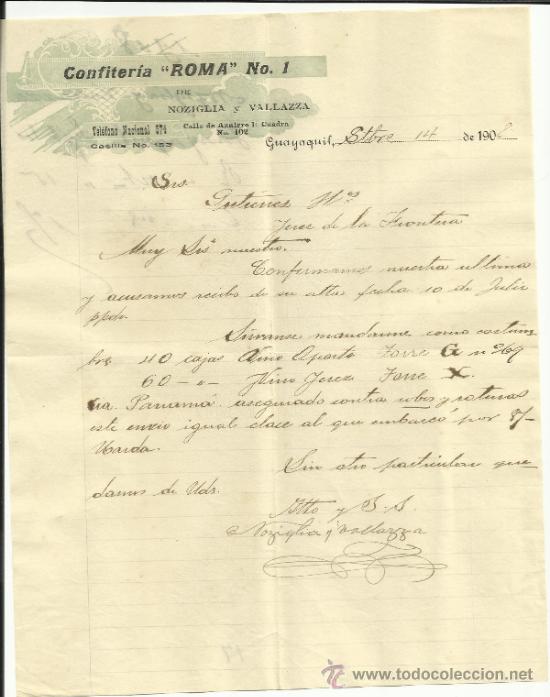 Confitería "ROMA" No. 1
DE
NOZIGLIA y VALLAZZA
Teléfono Nacional 574
Calle de Aguirre 1ª Cuadra
No. 102
Casilla No. 153
Guayaquil, Stbre 14 de 190
Srs
Gutierrez Hos
Jerez de la Frontera
Muy Srs nuestro.
Confirmamos nuestra ultima
y acusamos recibo de su atta fecha 10 de Julio
ppdo.
Sirvanse mandarme como costum
bre 40 cajas Vino Oporto Torre G nº 69
60 — " — Vino Jerez Torre X.
via Panamá asegurado contra robos y roturas
este envio igual clase al que embarcó por S/
Varda.
Sin otro particular que
damos de Uds.
Atto y S. S.
Noziglia y Vallazza
www.todocoleccion.net